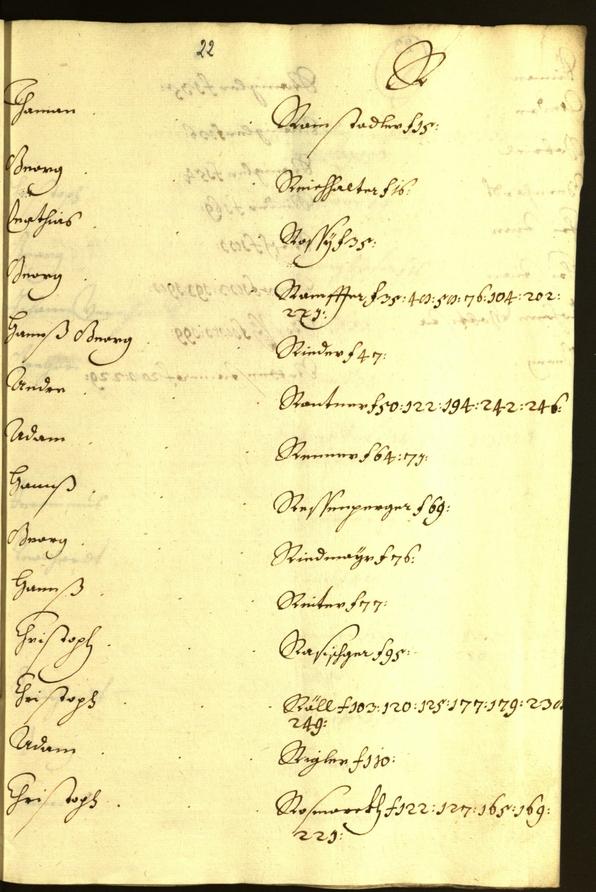 22
R
Haman Rainstadler f 15:
Georg Reichhalter f 16:
Mathias Rossÿ f 35:
Georg Rampffer f 35: 40: 50: 76: 104: 202:
221:
Hannß Georg Rieder f 47:
Andre Rantner f 50: 122: 194: 242: 246:
Adam Renner f 64: 71:
Hannß Ressenperger f 69:
Georg Riedmaÿr f 76:
Hannß Reiter f 77:
Christoph Rasischger f 95:
Christoph Räll f 103: 120: 125: 177: 179: 230
249:
Adam Rigler f 110:
Christoph Rosmarckh f 122: 127: 165: 169:
221: